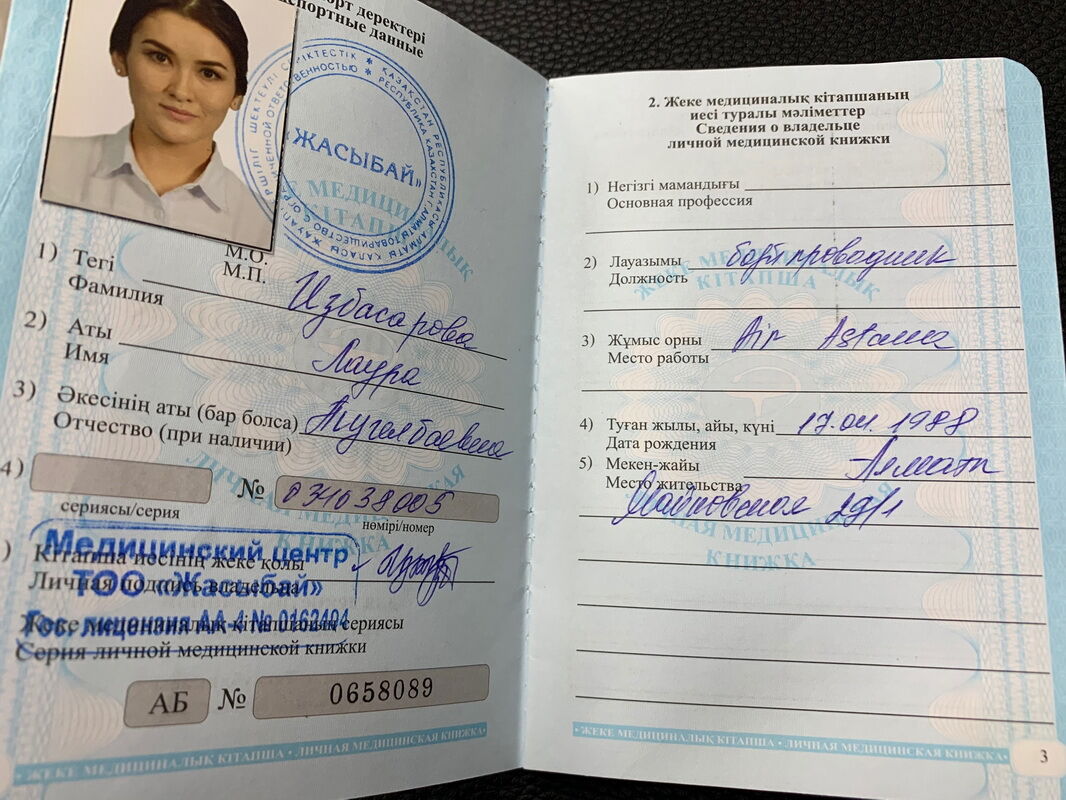 порт деректері
спортные данные
«ЖАСЫБАЙ»
М.О.
М.П.
1) Тегі
Фамилия
Избасарова
2) Аты
Имя
Лаура
3) Әкесінің аты (бар болса)
Отчество (при наличии)
4)
№ 031038005
сериясы/серия
нөмірі/номер
Медицинский центр
ТОО «Жасыбай»
Гос. лицензия АА-4 № 0162404
) Кітапша иесінің жеке қолы
Личная подпись владельца
Жеке медициналық кітапшаның сериясы
Серия личной медицинской книжки
АБ № 0658089
ЖЕКЕ МЕДИЦИНАЛЫҚ КІТАПША • ЛИЧНАЯ МЕДИЦИНСКАЯ КНИЖКА
2. Жеке медициналық кітапшаның
иесі туралы мәліметтер
Сведения о владельце
личной медицинской книжки
1) Негізгі мамандығы
Основная профессия
2) Лауазымы
Должность
бортпроводник
3) Жұмыс орны
Место работы
Air Astana
4) Туған жылы, айы, күні 17.04.1988
Дата рождения
5) Мекен-жайы Алматы
Место жительства
29/1
ЖЕКЕ МЕДИЦИНАЛЫҚ КІТАПША • ЛИЧНАЯ МЕДИЦИНСКАЯ КНИЖКА
3